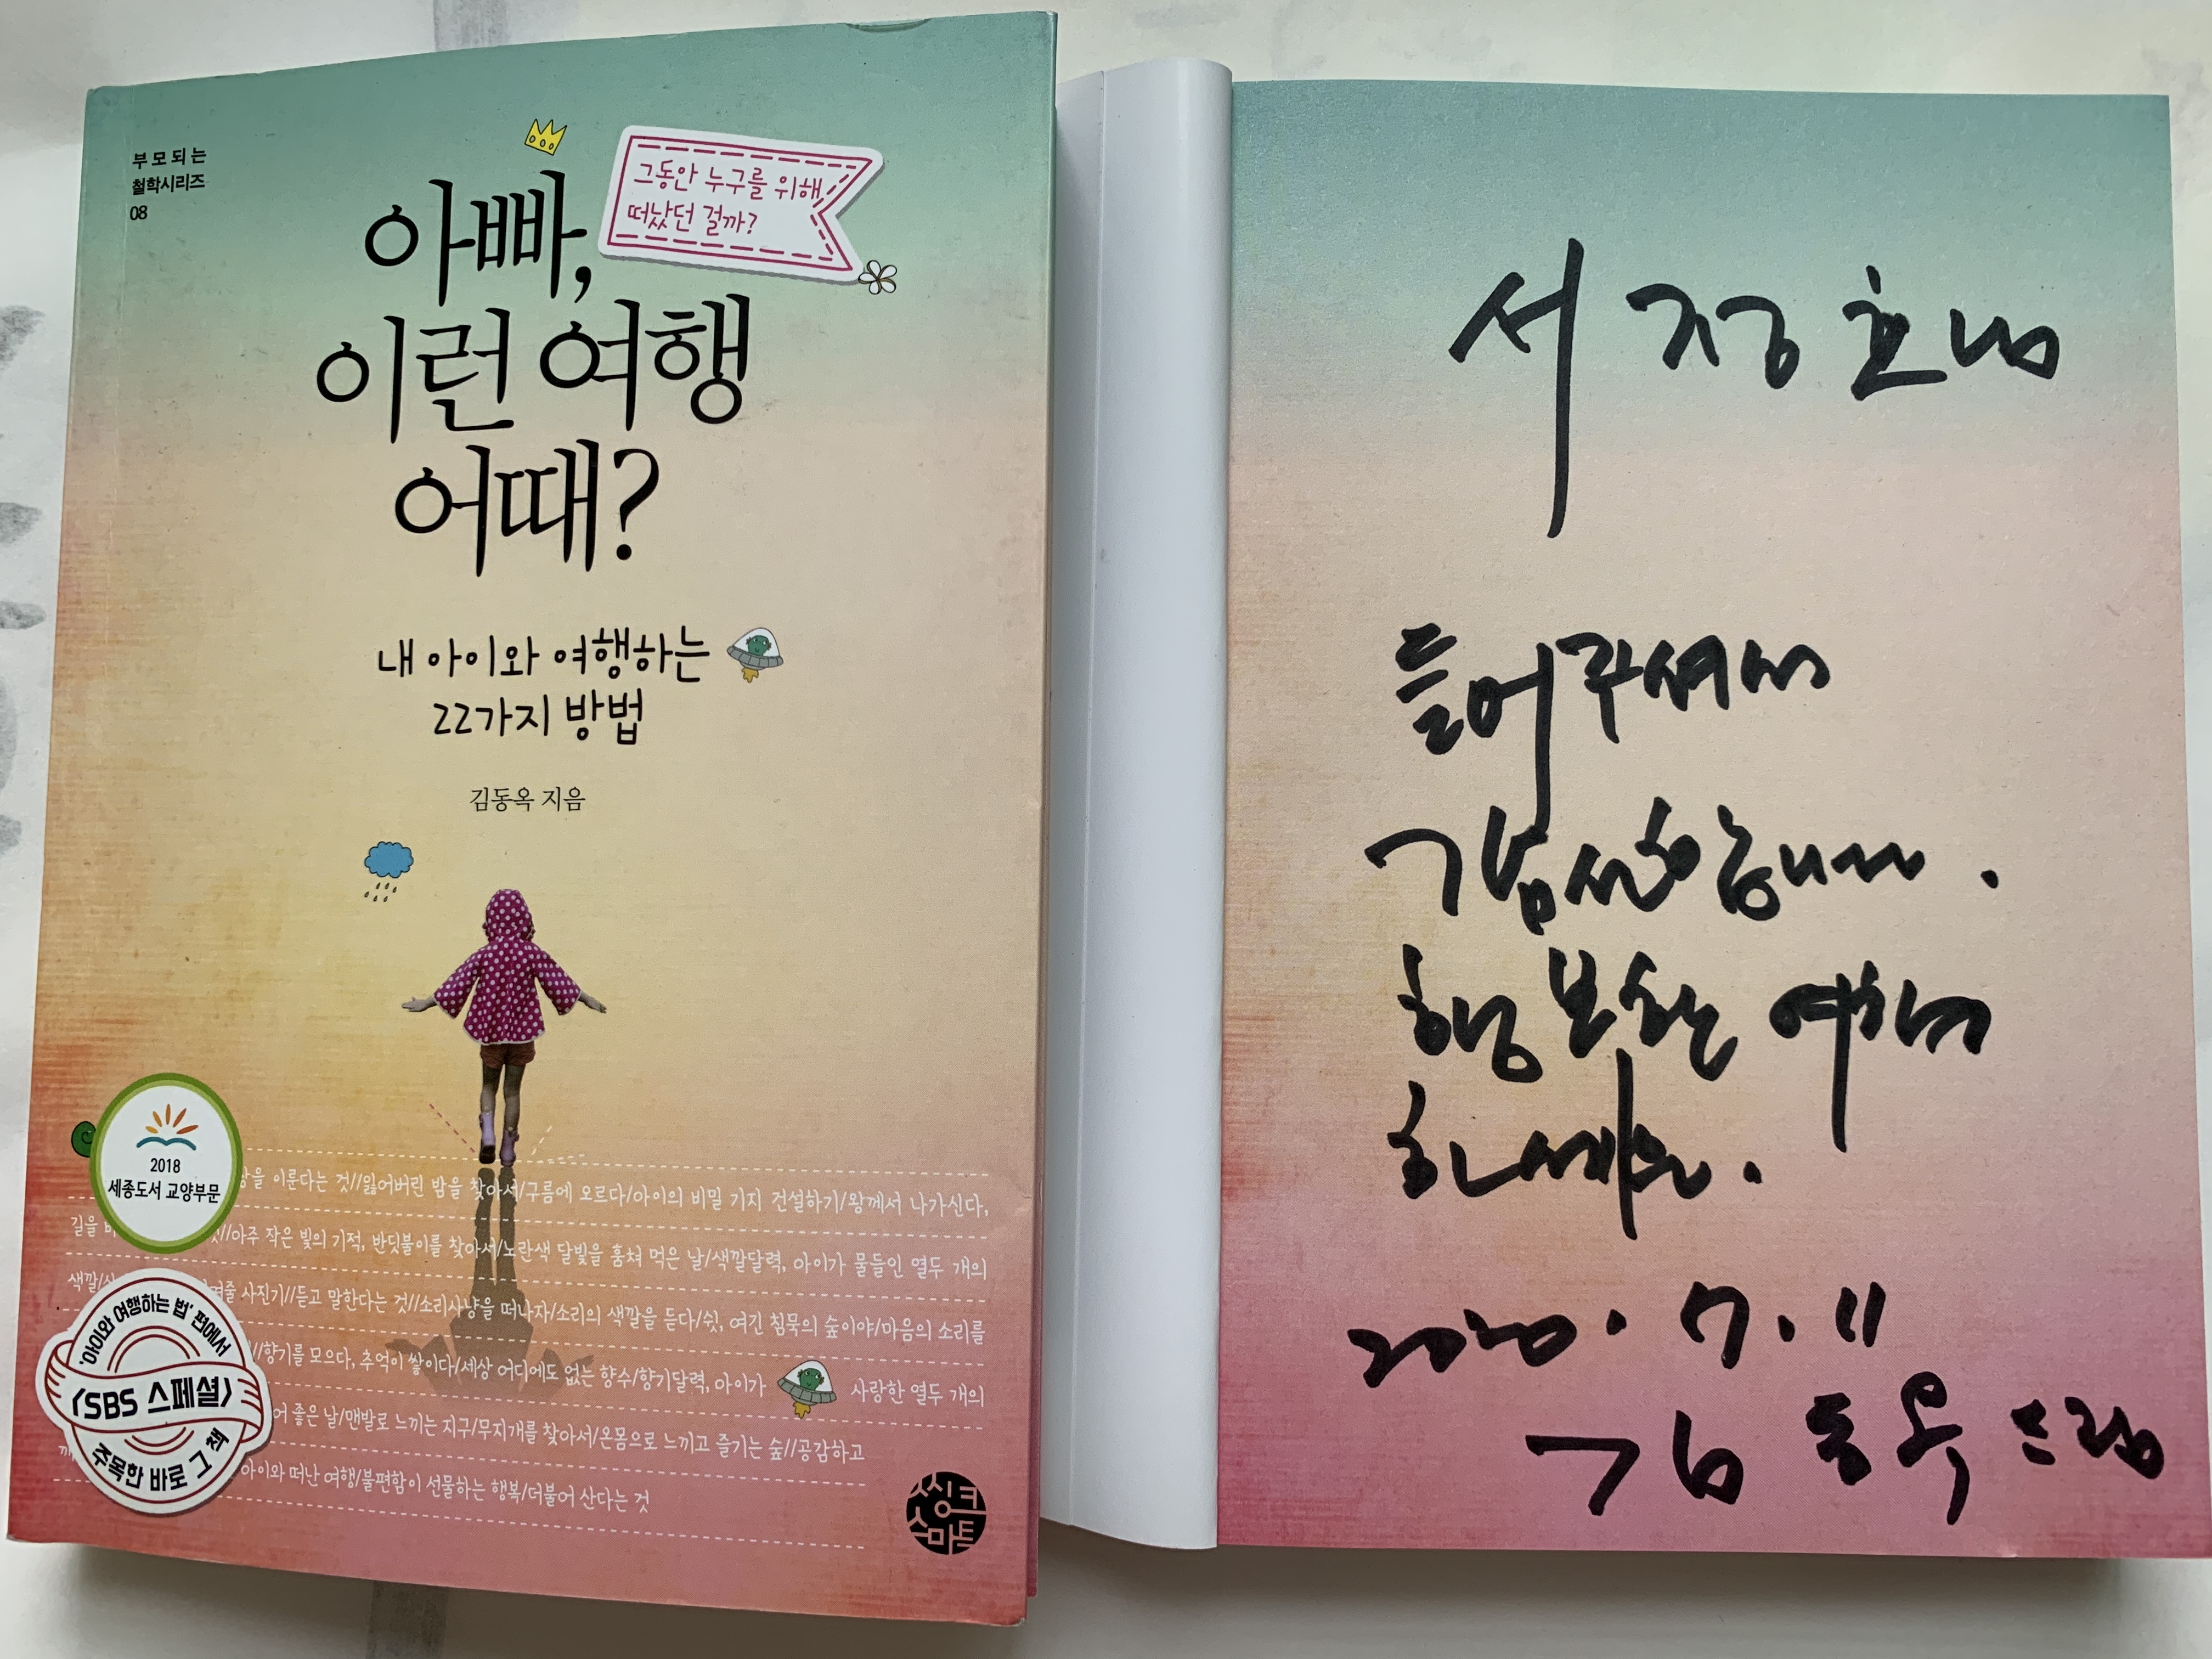 부모되는
철학시리즈
08
그동안 누구를 위해
떠났던 걸까?
아빠,
이런 여행
어때?
내 아이와 여행하는
22가지 방법
김동옥 지음
2018
세종도서 교양부문
'아이와 여행하는 법' 편에서
〈SBS 스페셜〉
주목한 바로 그 책
을 이룬다는 것//잃어버린 밤을 찾아서/구름에 오르다/아이의 비밀 기지 건설하기/왕께서 나가신다,
길을 //아주 작은 빛의 기적, 반딧불이를 찾아서/노란색 달빛을 훔쳐 먹은 날/색깔달력, 아이가 물들인 열두 개의
색깔/ 사진기//듣고 말한다는 것//소리사냥을 떠나자/소리의 색깔을 듣다/쉿, 여긴 침묵의 숲이야/마음의 소리를
//향기를 모으다, 추억이 쌓이다/세상 어디에도 없는 향수/향기달력, 아이가 사랑한 열두 개의
좋은 날/맨발로 느끼는 지구/무지개를 찾아서/온몸으로 느끼고 즐기는 숲//공감하고
아이와 떠난 여행/불편함이 선물하는 행복/더불어 산다는 것
씽크
스마트
서정호님
들어주셔서
감사합니다.
행복한 여행
하세요.
2020. 7. 11
김동옥 드림